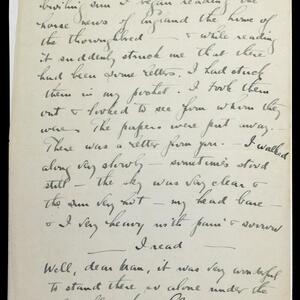 broiling sun I began reading the
horse news of England the home of
the thoroughbred — & while reading
it suddenly struck me that there
had been some letters. I had stuck
them in my pocket. I took them
out & looked to see from whom they
were. The papers were put away.
There was a letter from you. I walked
along very slowly — sometimes stood
still — the sky was very clear &
the sun very hot — my head bare —
& I very heavy with pain & sorrow
— I read —
Well, dear man, it was very wonderful
to stand there so alone under the